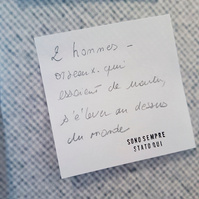 2 hommes -
oiseaux - qui
essaient de
s'élever au dessus
du monde
SONO SEMPRE
STATO QUI